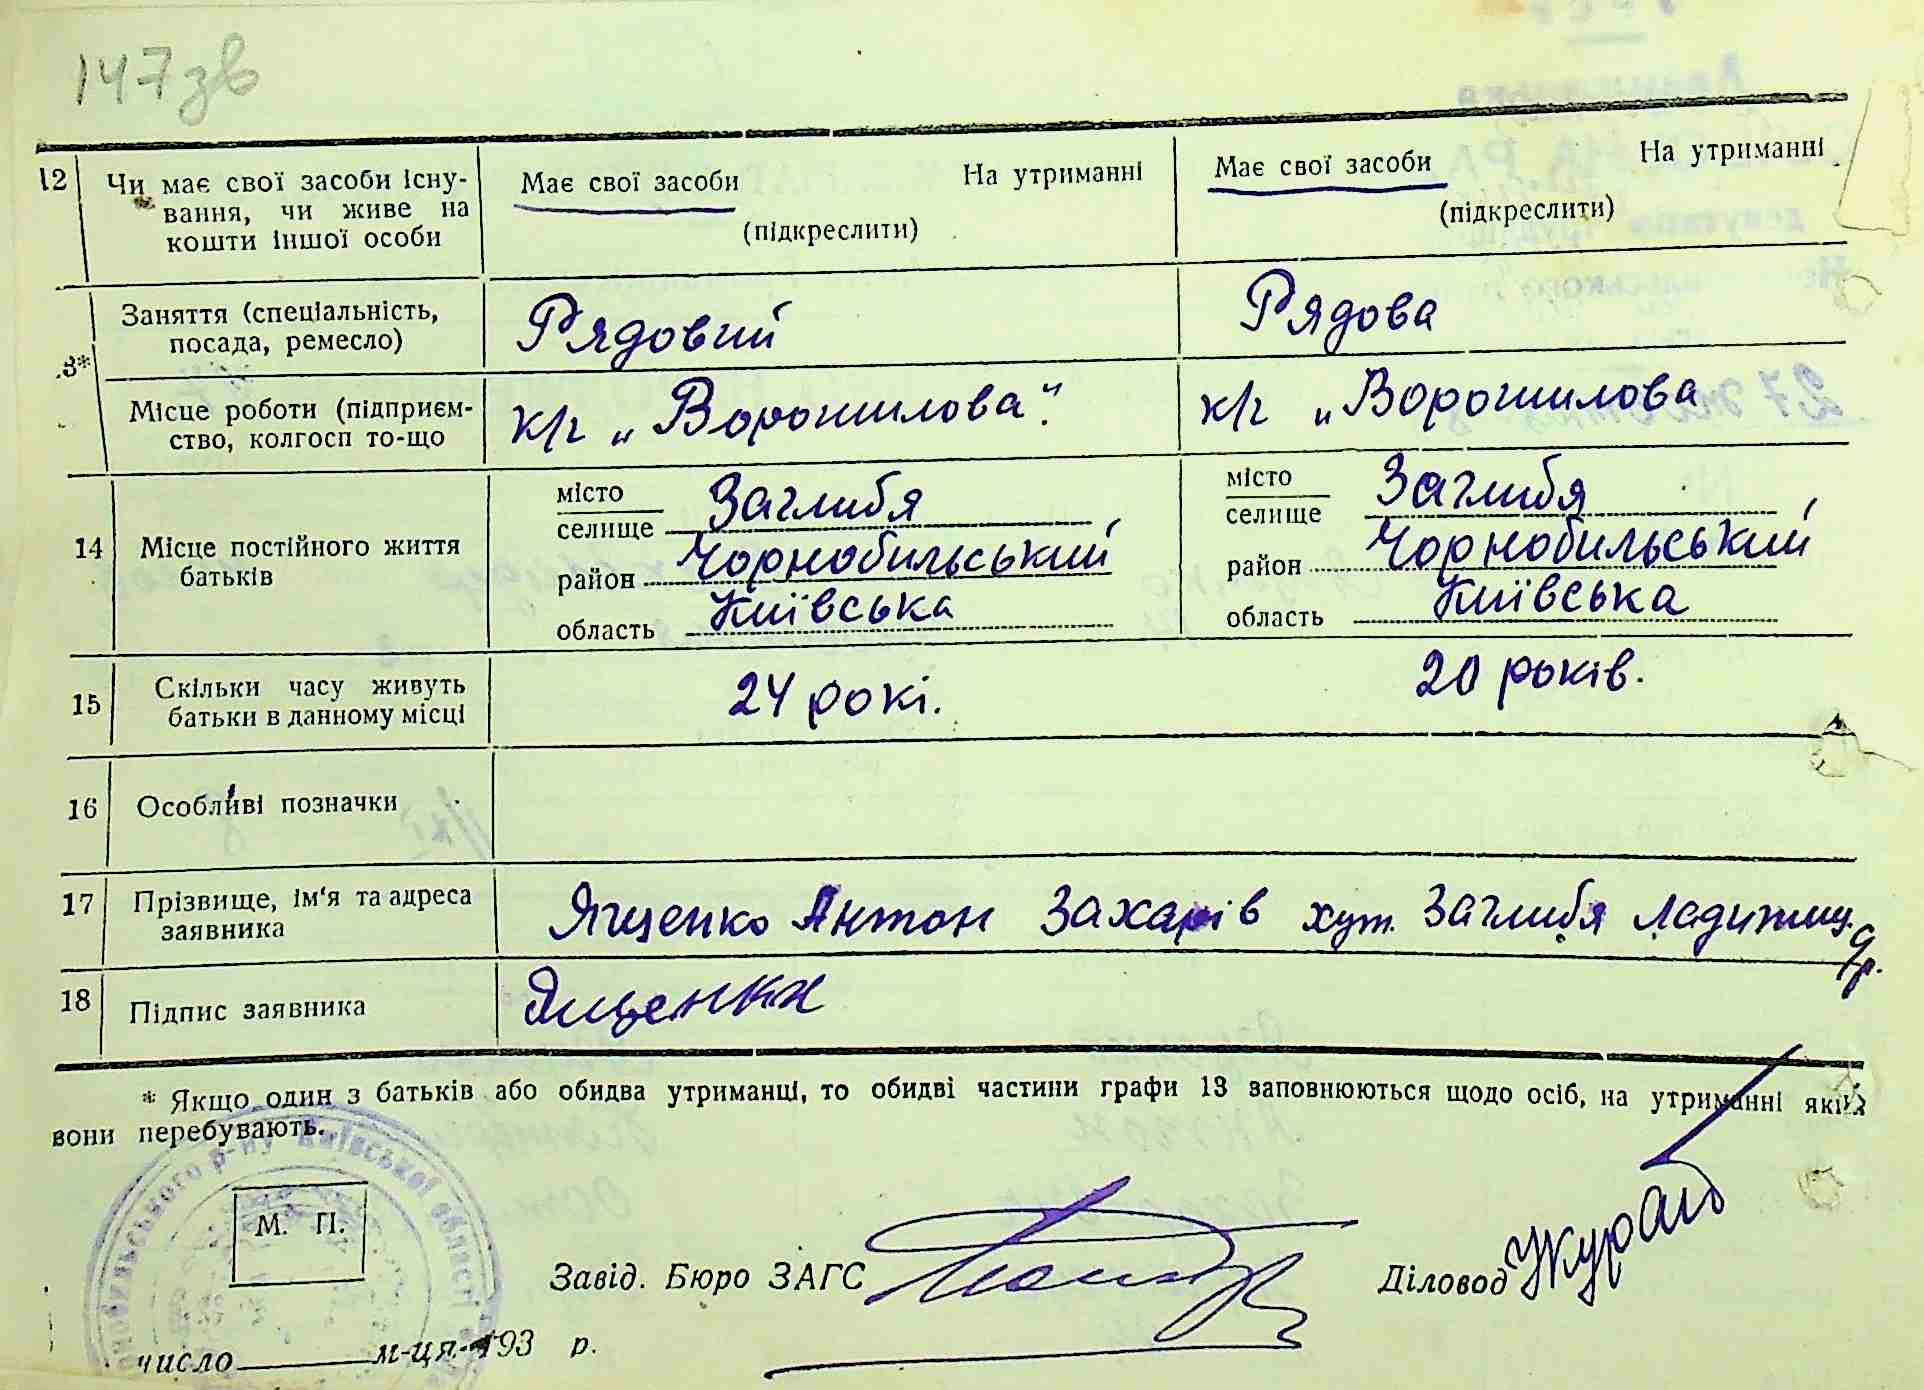 147 зв
12 Чи має свої засоби існу- Має свої засоби На утриманні Має свої засоби На утриманні
вання, чи живе на (підкреслити) (підкреслити)
кошти іншої особи
Заняття (спеціальність, Рядовий Рядова
посада, ремесло)
3*
Місце роботи (підприєм- к/г „Ворошилова". к/г „Ворошилова
ство, колгосп то-що
14 Місце постійного життя місто Заглибя місто Заглибя
батьків селище селище
район Чорнобильський район Чорнобильський
область Київська область Київська
15 Скільки часу живуть 24 рокі. 20 років.
батьки в данному місці
16 Особливі позначки
17 Прізвище, ім'я та адреса Ященко Антон Захарів хут. Заглибя Ладижиц.
заявника
18 Підпис заявника Ященко
* Якщо один з батьків або обидва утриманці, то обидві частини графи 13 заповнюються щодо осіб, на утриманні яких
вони перебувають.
р-ну Київської області
М. П.
Завід. Бюро ЗАГС Діловод
число м-ця 193 р.